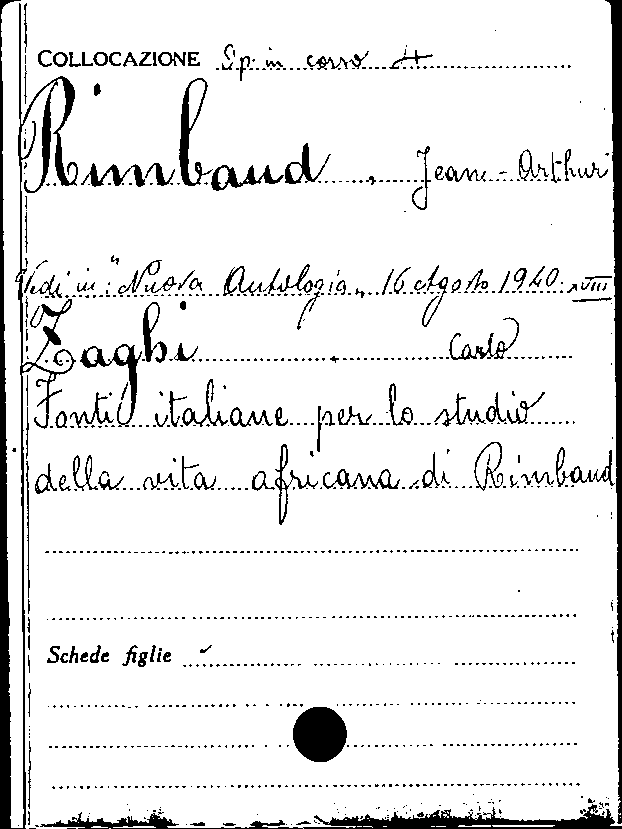 COLLOCAZIONE Sp. in corso 4
Rimbaud, Jean-Arthur
Vedi in: "Nuova Antologia„ 16 Agosto 1940. XVIII
Zaghi. Carlo
Fonti italiane per lo studio
della vita africana di Rimbaud
Schede figlie